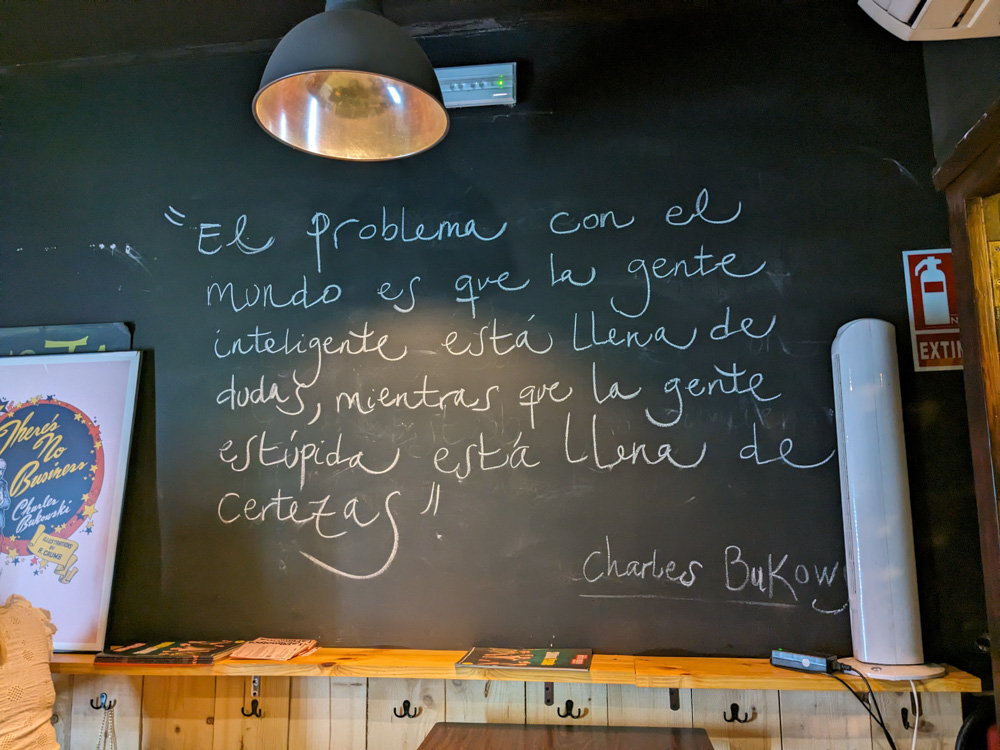 "El problema con el
mundo es que la gente
inteligente está llena de
dudas, mientras que la gente
estúpida está llena de
certezas"
Charles Bukow
There's
No
Business
Charles
Bukowski
ILLUSTRATIONS
BY
R. CRUMB
EXTIN